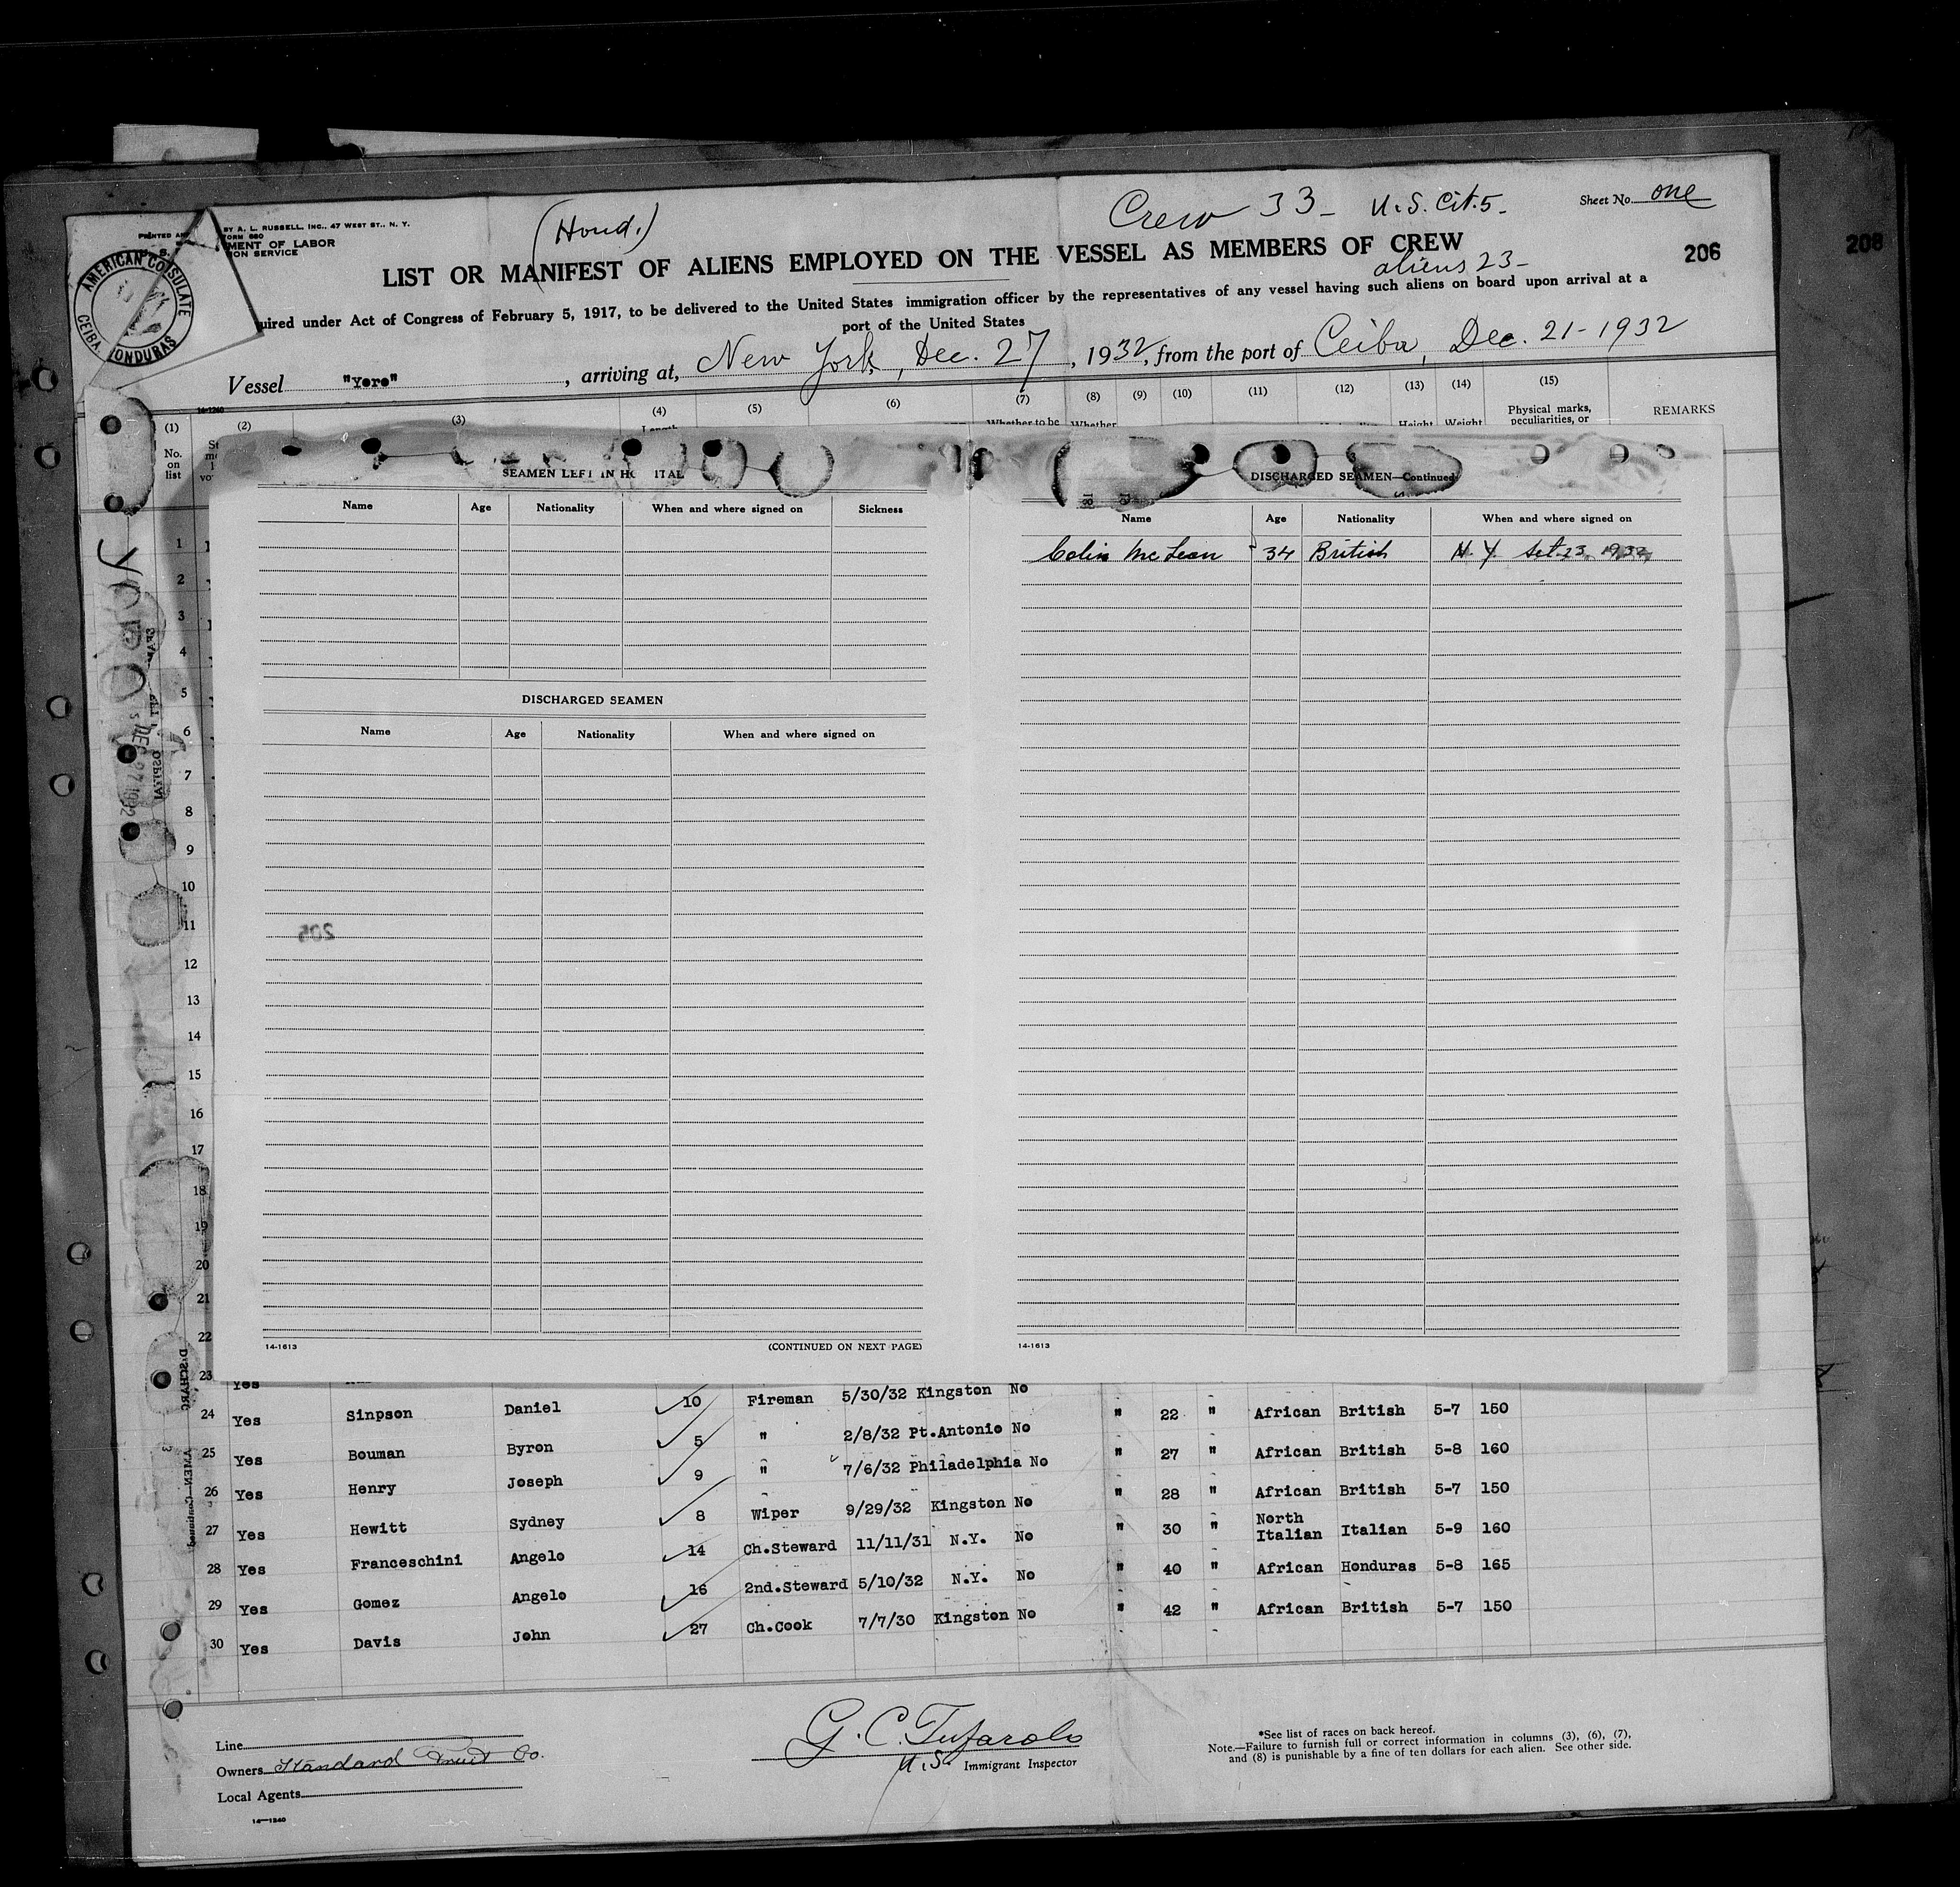 Crew 33 - U.S. Cit. 5 -
Sheet No. one
PRINTED AND
BY A. L. RUSSELL, INC., 47 WEST ST., N. Y.
FORM 680
MENT OF LABOR
ION SERVICE
(Hond.)
LIST OR MANIFEST OF ALIENS EMPLOYED ON THE VESSEL AS MEMBERS OF CREW
206
208
aliens 23 -
AMERICAN CONSULATE
CEIBA, HONDURAS
uired under Act of Congress of February 5, 1917, to be delivered to the United States immigration officer by the representatives of any vessel having such aliens on board upon arrival at a
port of the United States
Vessel "Yoro", arriving at, New York, Dec. 27, 1932, from the port of Ceiba, Dec. 21-1932
14-1240
(1) (2) (3) (4) (5) (6) (7) (8) (9) (10) (11) (12) (13) (14) (15)
No. on list
Length
Whether to be
Whether
Height
Weight
Physical marks, peculiarities, or
REMARKS
SEAMEN LEFT IN HO ITAL
Name Age Nationality When and where signed on Sickness
DISCHARGED SEAMEN
Name Age Nationality When and where signed on
205
14-1613
(CONTINUED ON NEXT PAGE)
DISCHARGED SEAMEN—Continued
Name Age Nationality When and where signed on
Colin McLean 34 British N. Y. 23, 1932
14-1613
Yoro
DEC 27 1932
1
2
3
4
5
6
7
8
9
10
11
12
13
14
15
16
17
18
19
20
21
22
23 Yes
24 Yes Sinpson Daniel 10 Fireman 5/30/32 Kingston No " 22 " African British 5-7 150
25 Yes Bouman Byron 5 " 2/8/32 Pt.Antonio No " 27 " African British 5-8 160
26 Yes Henry Joseph 9 " 7/6/32 Philadelphia No " 28 " African British 5-7 150
27 Yes Hewitt Sydney 8 Wiper 9/29/32 Kingston No " 30 " North Italian Italian 5-9 160
28 Yes Franceschini Angelo 14 Ch.Steward 11/11/31 N.Y. No " 40 " African Honduras 5-8 165
29 Yes Gomez Angelo 16 2nd.Steward 5/10/32 N.Y. No " 42 " African British 5-7 150
30 Yes Davis John 27 Ch.Cook 7/7/30 Kingston No
Line
Owners Standard Fruit Co.
Local Agents
14—1240
G. C. Tufarolo
U.S. Immigrant Inspector
*See list of races on back hereof.
Note.—Failure to furnish full or correct information in columns (3), (6), (7),
and (8) is punishable by a fine of ten dollars for each alien. See other side.